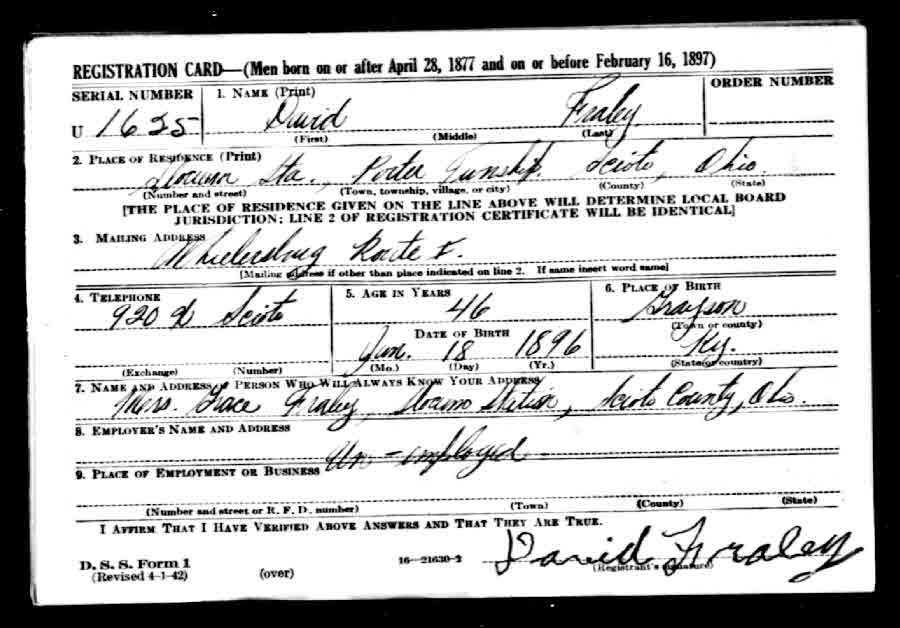 REGISTRATION CARD—(Men born on or after April 28, 1877 and on or before February 16, 1897)
SERIAL NUMBER 1. NAME (Print) ORDER NUMBER
U 1625 David Fraley
(First) (Middle) (Last)
2. PLACE OF RESIDENCE (Print)
Slocum Sta., Porter Township. Scioto, Ohio.
(Number and street) (Town, township, village, or city) (County) (State)
[THE PLACE OF RESIDENCE GIVEN ON THE LINE ABOVE WILL DETERMINE LOCAL BOARD
JURISDICTION; LINE 2 OF REGISTRATION CERTIFICATE WILL BE IDENTICAL]
3. MAILING ADDRESS
Wheelersburg Route
[Mailing address if other than place indicated on line 2. If same insert word same]
4. TELEPHONE 5. AGE IN YEARS 6. PLACE OF BIRTH
920 X Scioto 46 Grayson
(Town or county)
DATE OF BIRTH
Jan. 18 1896 Ky.
(Exchange) (Number) (Mo.) (Day) (Yr.) (State or country)
7. NAME AND ADDRESS OF PERSON WHO WILL ALWAYS KNOW YOUR ADDRESS
Mrs. Grace Fraley, Slocum Station, Scioto County, Ohio.
8. EMPLOYER'S NAME AND ADDRESS
Un-employed
9. PLACE OF EMPLOYMENT OR BUSINESS
(Number and street or R. F. D. number) (Town) (County) (State)
I AFFIRM THAT I HAVE VERIFIED ABOVE ANSWERS AND THAT THEY ARE TRUE.
D. S. S. Form 1 16—21630-2 David Fraley
(Revised 4-1-42) (over) (Registrant's signature)